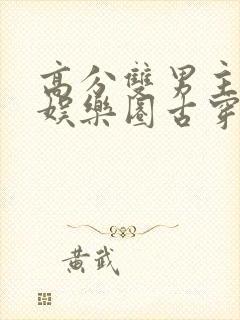 高分雙男主
娛樂圈古穿
黃武